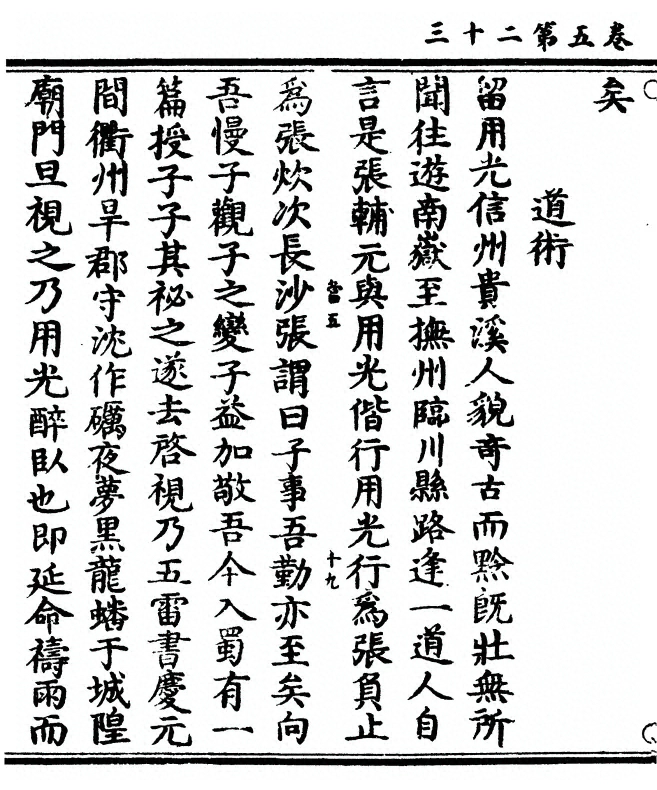 三十二第五卷
矣
道術
留用光信州貴溪人貌竒古而黥旣壯無所
聞往遊南嶽至撫州臨川縣路逢一道人自
言是張輔元與用光偕行用光行爲張負止
卷五
十九
爲張炊次長沙張謂曰子事吾勤亦至矣向
吾慢子觀子之變子益加敬吾今入蜀有一
篇授子子其祕之遂去啓視乃五雷書慶元
間衢州旱郡守沈作礪夜夢黑龍蟠于城隍
廟門旦視之乃用光醉臥也即延命禱雨而